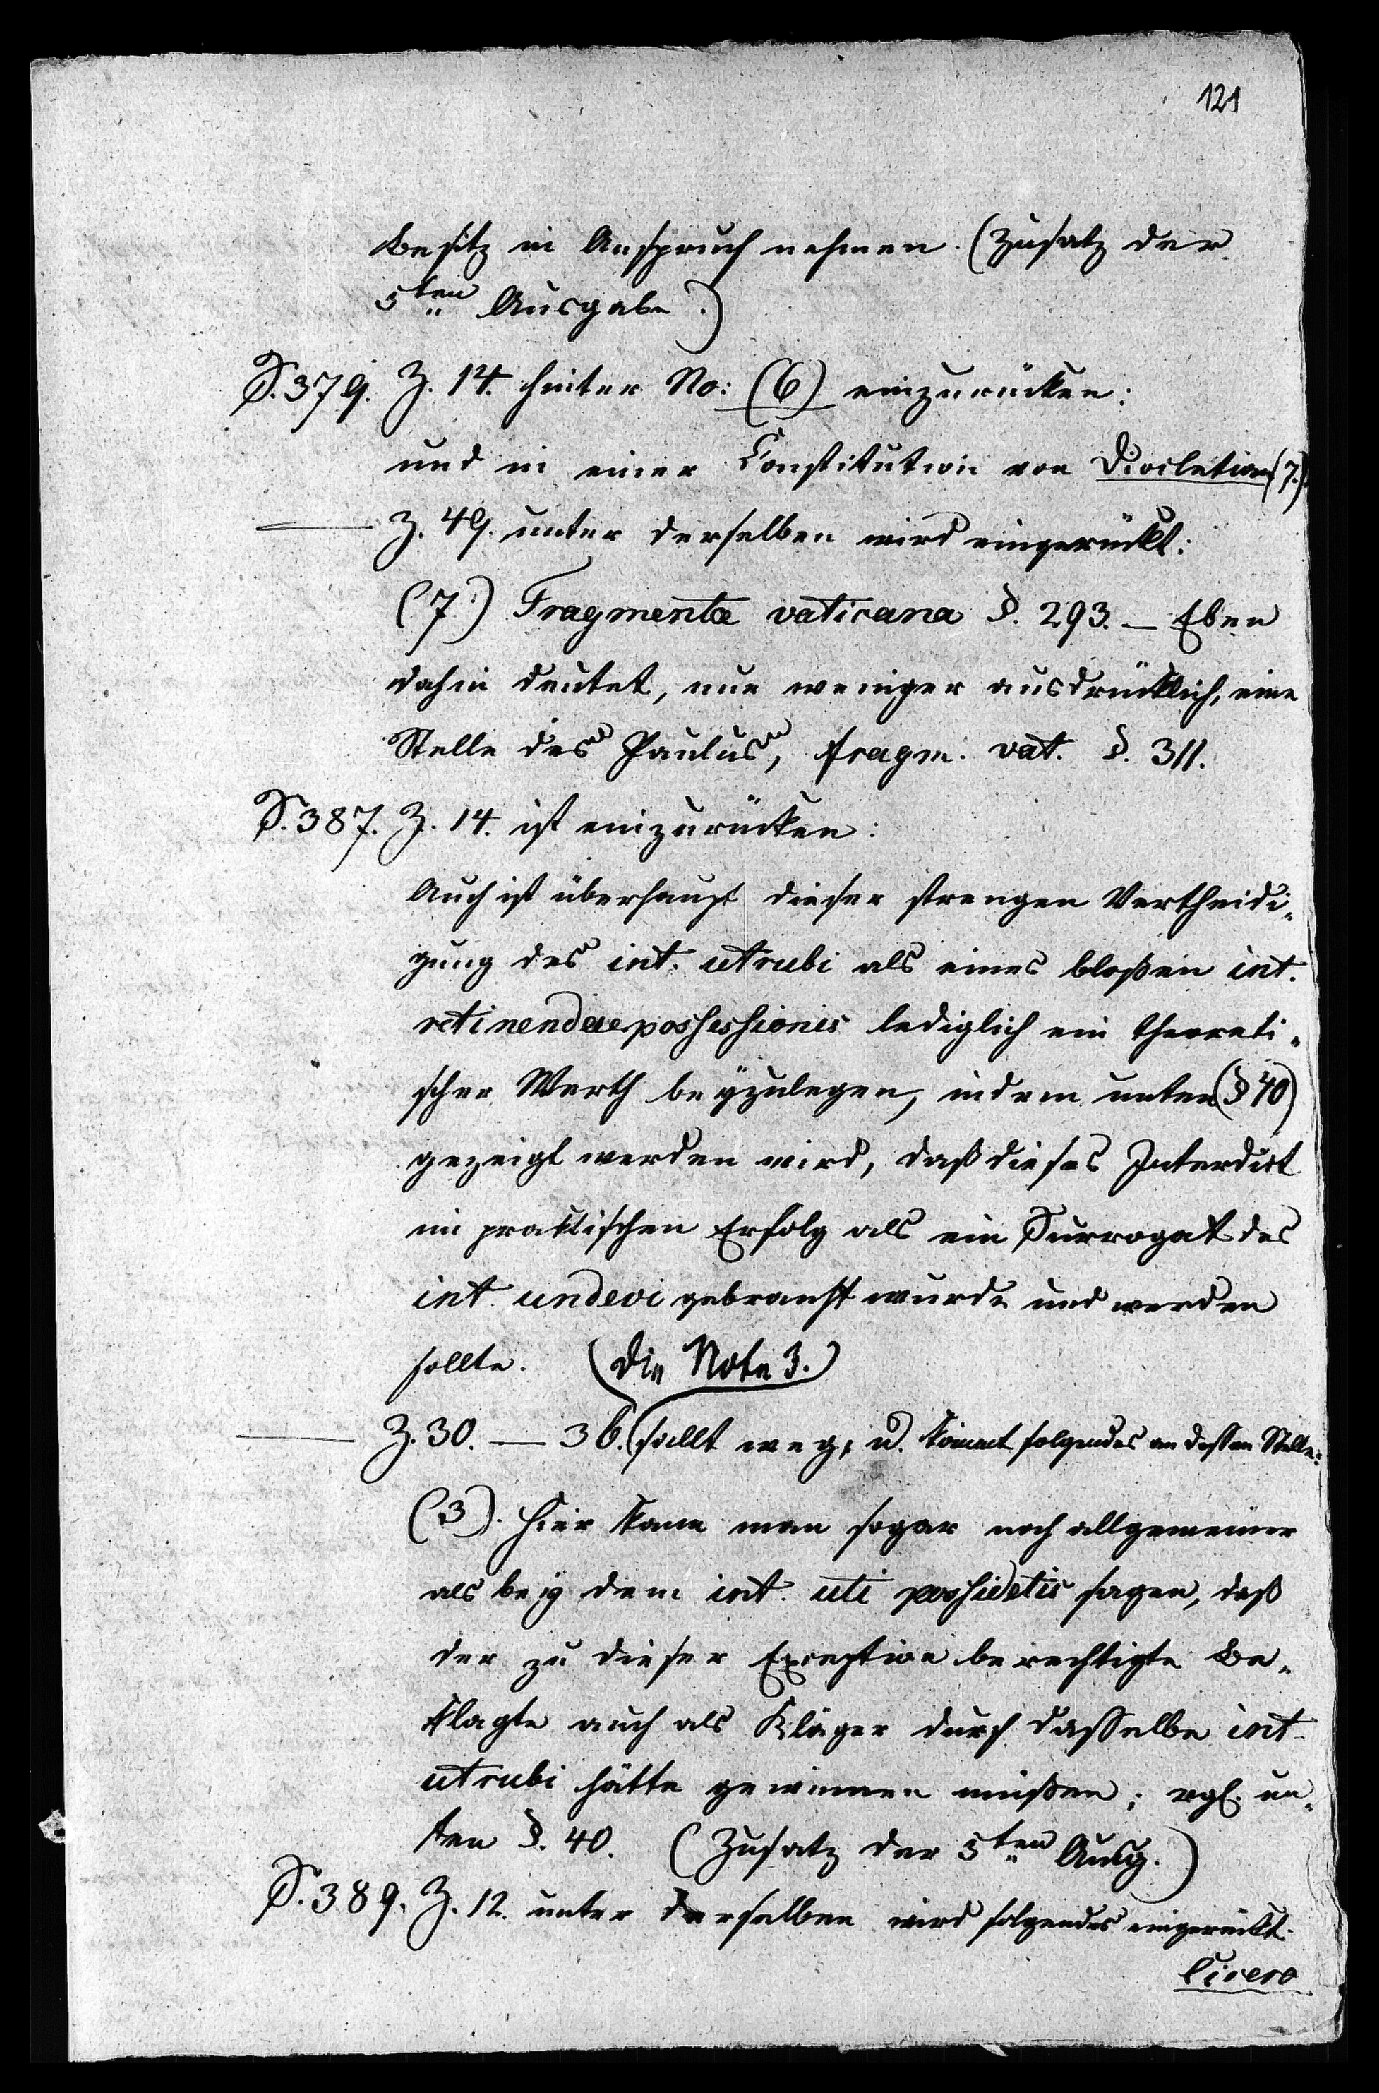 121
Besitz in Anspruch nehmen. (Zusatz der
5ten Ausgabe.)
S. 379. Z. 14. hinter No: (6) einzurücken:
und in einer Constitution von Diocletian (7.)
— Z. 49. unter derselben wird eingerückt:
(7.) Fragmenta vaticana §. 293. — Eben
dahin deutet, nur weniger ausdrücklich, eine
Stelle des Paulus, fragm. vat. §. 311.
S. 387. Z. 14. ist einzurücken:
Auch ist überhaupt dieser strengen Vertheidi-
gung des int. utrubi als eines bloßen int.
retinendae possessionis lediglich ein theoreti-
scher Werth beyzulegen, indem unten (§ 40)
gezeigt werden wird, daß dieses Interdict
im praktischen Erfolg als ein Surrogat des
int. unde vi gebraucht wurde und werden
sollte. (Die Note 3.)
— Z. 30. — 36. fällt weg, u. kommt folgendes an dessen Stelle:
(3). Hier kann man sogar noch allgemeiner
als bey dem int. uti possidetis sagen, daß
der zu dieser Exception berechtigte Be-
klagte auch als Kläger durch dasselbe int.
utrubi hätte gewinnen müßen; vgl. un-
ten §. 40. (Zusatz der 5ten Ausg.)
S. 389. Z. 12. unter derselben wird folgendes eingerückt.
Cicero